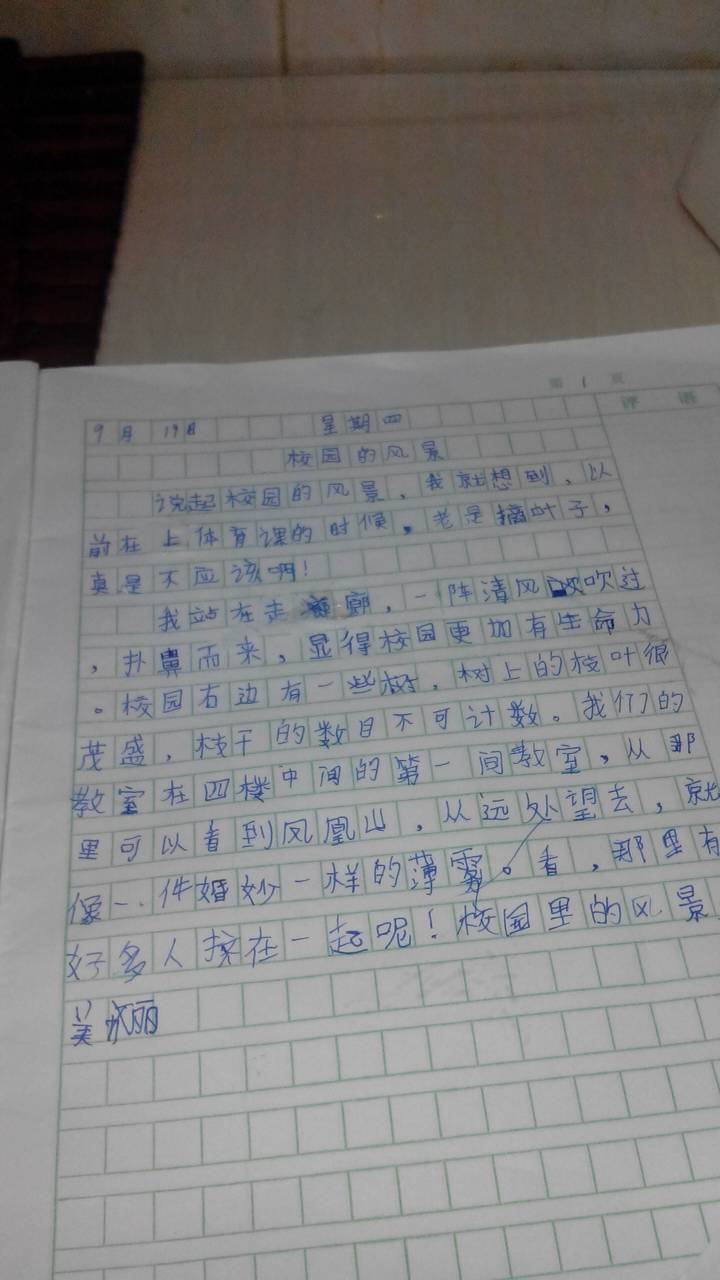 第 1 页
评 语
9月 19日 星期四
校园的风景
说起校园的风景，我就想到，以
前在上体育课的时候，老是摘叶子，
真是不应该啊！
我站在走廊，一阵清风吹过
，扑鼻而来，显得校园更加有生命力
。校园右边有一些树，树上的枝叶很
茂盛，枝干的数目不可计数。我们的
教室在四楼中间的第一间教室，从那
里可以看到凤凰山，从远处望去，就
像一件婚妙一样的薄雾。看，那里有
好多人挨在一起呢！校园里的风景
美丽